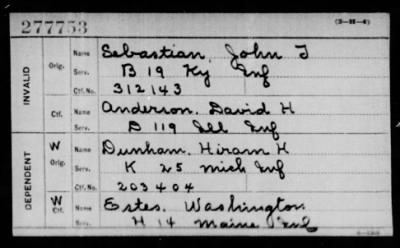 277753 (3-H-4)
INVALID
Orig. Name Sebastian, John T
Serv. B 19 Ky Inf
Ctf. No. 312143
Ctf. Name Anderson, David H
Serv. D 119 Ill Inf
DEPENDENT
W Orig. Name Dunham, Hiram H
Serv. K 25 Mich Inf
Ctf. No. 203404
W Ctf. Name Estes, Washington
Serv. H 14 Maine Inf